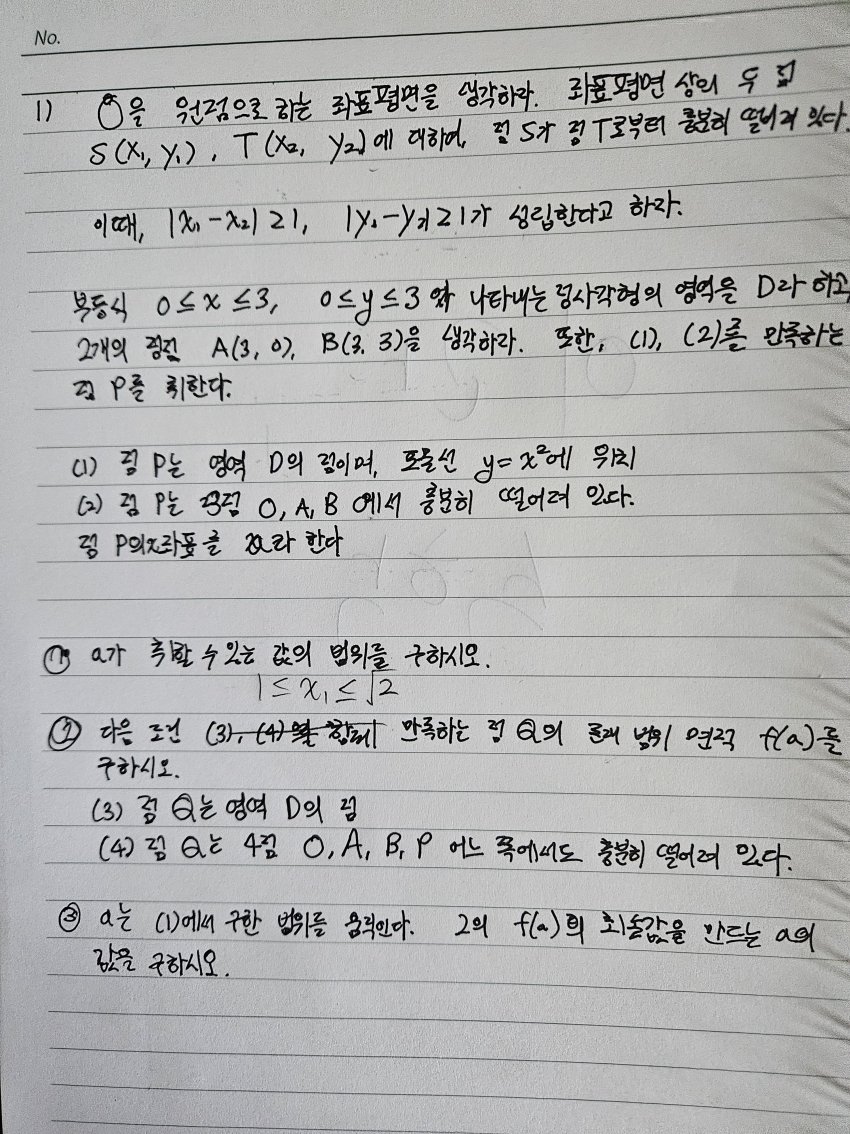 No.
1) O을 원점으로 하는 좌표평면을 생각하라. 좌표평면 상의 두 점
S(x₁, y₁), T(x₂, y₂)에 대하여, 점 S가 점 T로부터 충분히 떨어져 있다.
이때, |x₁-x₂|≥1, |y₁-y₂|≥1가 성립한다고 하자.
부등식 0≤x≤3, 0≤y≤3 나타내는 정사각형의 영역을 D라 하고,
2개의 정점 A(3, 0), B(3, 3)을 생각하라. 또한, (1), (2)를 만족하는
점 P를 취한다.
(1) 점 P는 영역 D의 점이며, 포물선 y=x²에 위치
(2) 점 P는 정점 O, A, B 에서 충분히 떨어져 있다.
점 P의 x좌표를 a라 한다
① a가 취할 수 있는 값의 범위를 구하시오.
1≤x₁≤√2
② 다음 조건 (3), (4)를 함께 만족하는 점 Q의 존재 범위 면적 f(a)를
구하시오.
(3) 점 Q는 영역 D의 점
(4) 점 Q는 4점 O, A, B, P 어느 쪽에서도 충분히 떨어져 있다.
③ a는 (1)에서 구한 범위를 움직인다. 2의 f(a)의 최솟값을 만드는 a의
값을 구하시오.